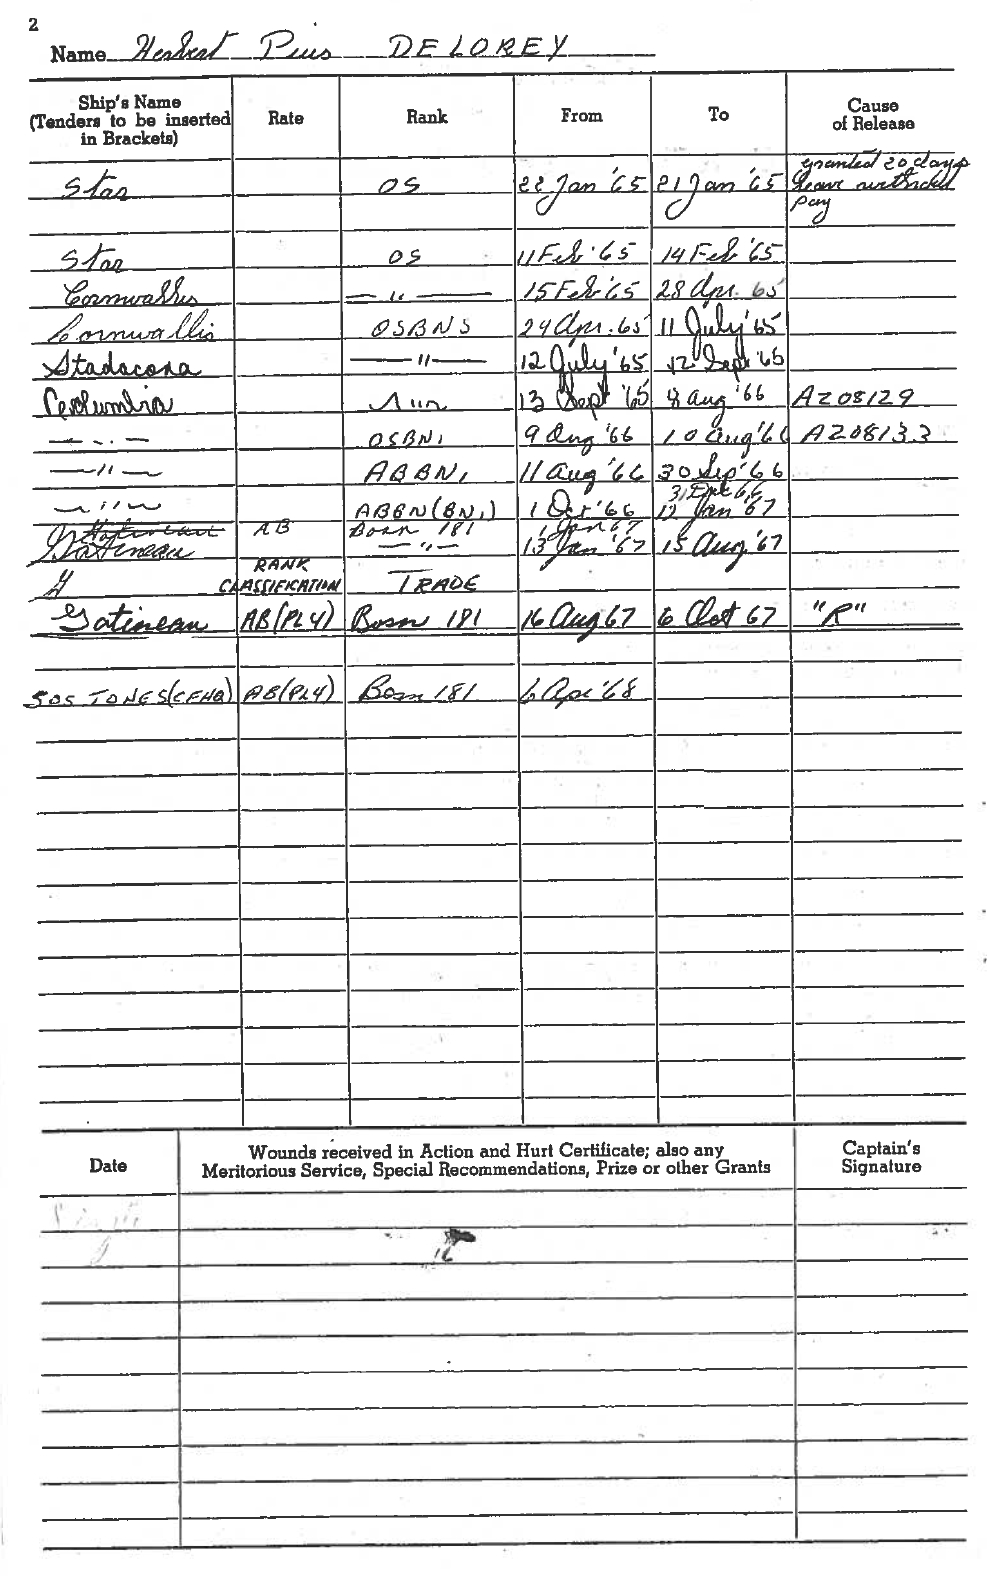 2
Name Herbert Pius DELOREY
Ship's Name (Tenders to be inserted in Brackets) Rate Rank From To Cause of Release
Star OS 22 Jan '65 21 Jan '65 granted 20 days leave without pay
Star OS 11 Feb '65 14 Feb '65
Cornwallis — " — 15 Feb '65 28 Apr. 65
Cornwallis OSBNS 29 Apr. 65 11 July '65
Stadacona — " — 12 July '65 12 Sept '65
Columbia — " — 13 Sept '65 8 Aug '66 A208129
— " — OSBN1 9 Aug '66 10 Aug '66 A208133
— " — ABBN1 11 Aug '66 30 Sep '66
— " — ABBN (BN1) 1 Oct '66 12 Jan '67
AB Bosn 181 1 Jan 67
Gatineau — " — 13 Jan '67 15 Aug '67
RANK
CLASSIFICATION TRADE
Gatineau AB (PLY) Bosn 181 16 Aug 67 6 Oct 67 "R"
SOS TO NES (CFHQ) AB (PL4) Bosn 181 6 Apr '68
Date Wounds received in Action and Hurt Certificate; also any Meritorious Service, Special Recommendations, Prize or other Grants Captain's Signature